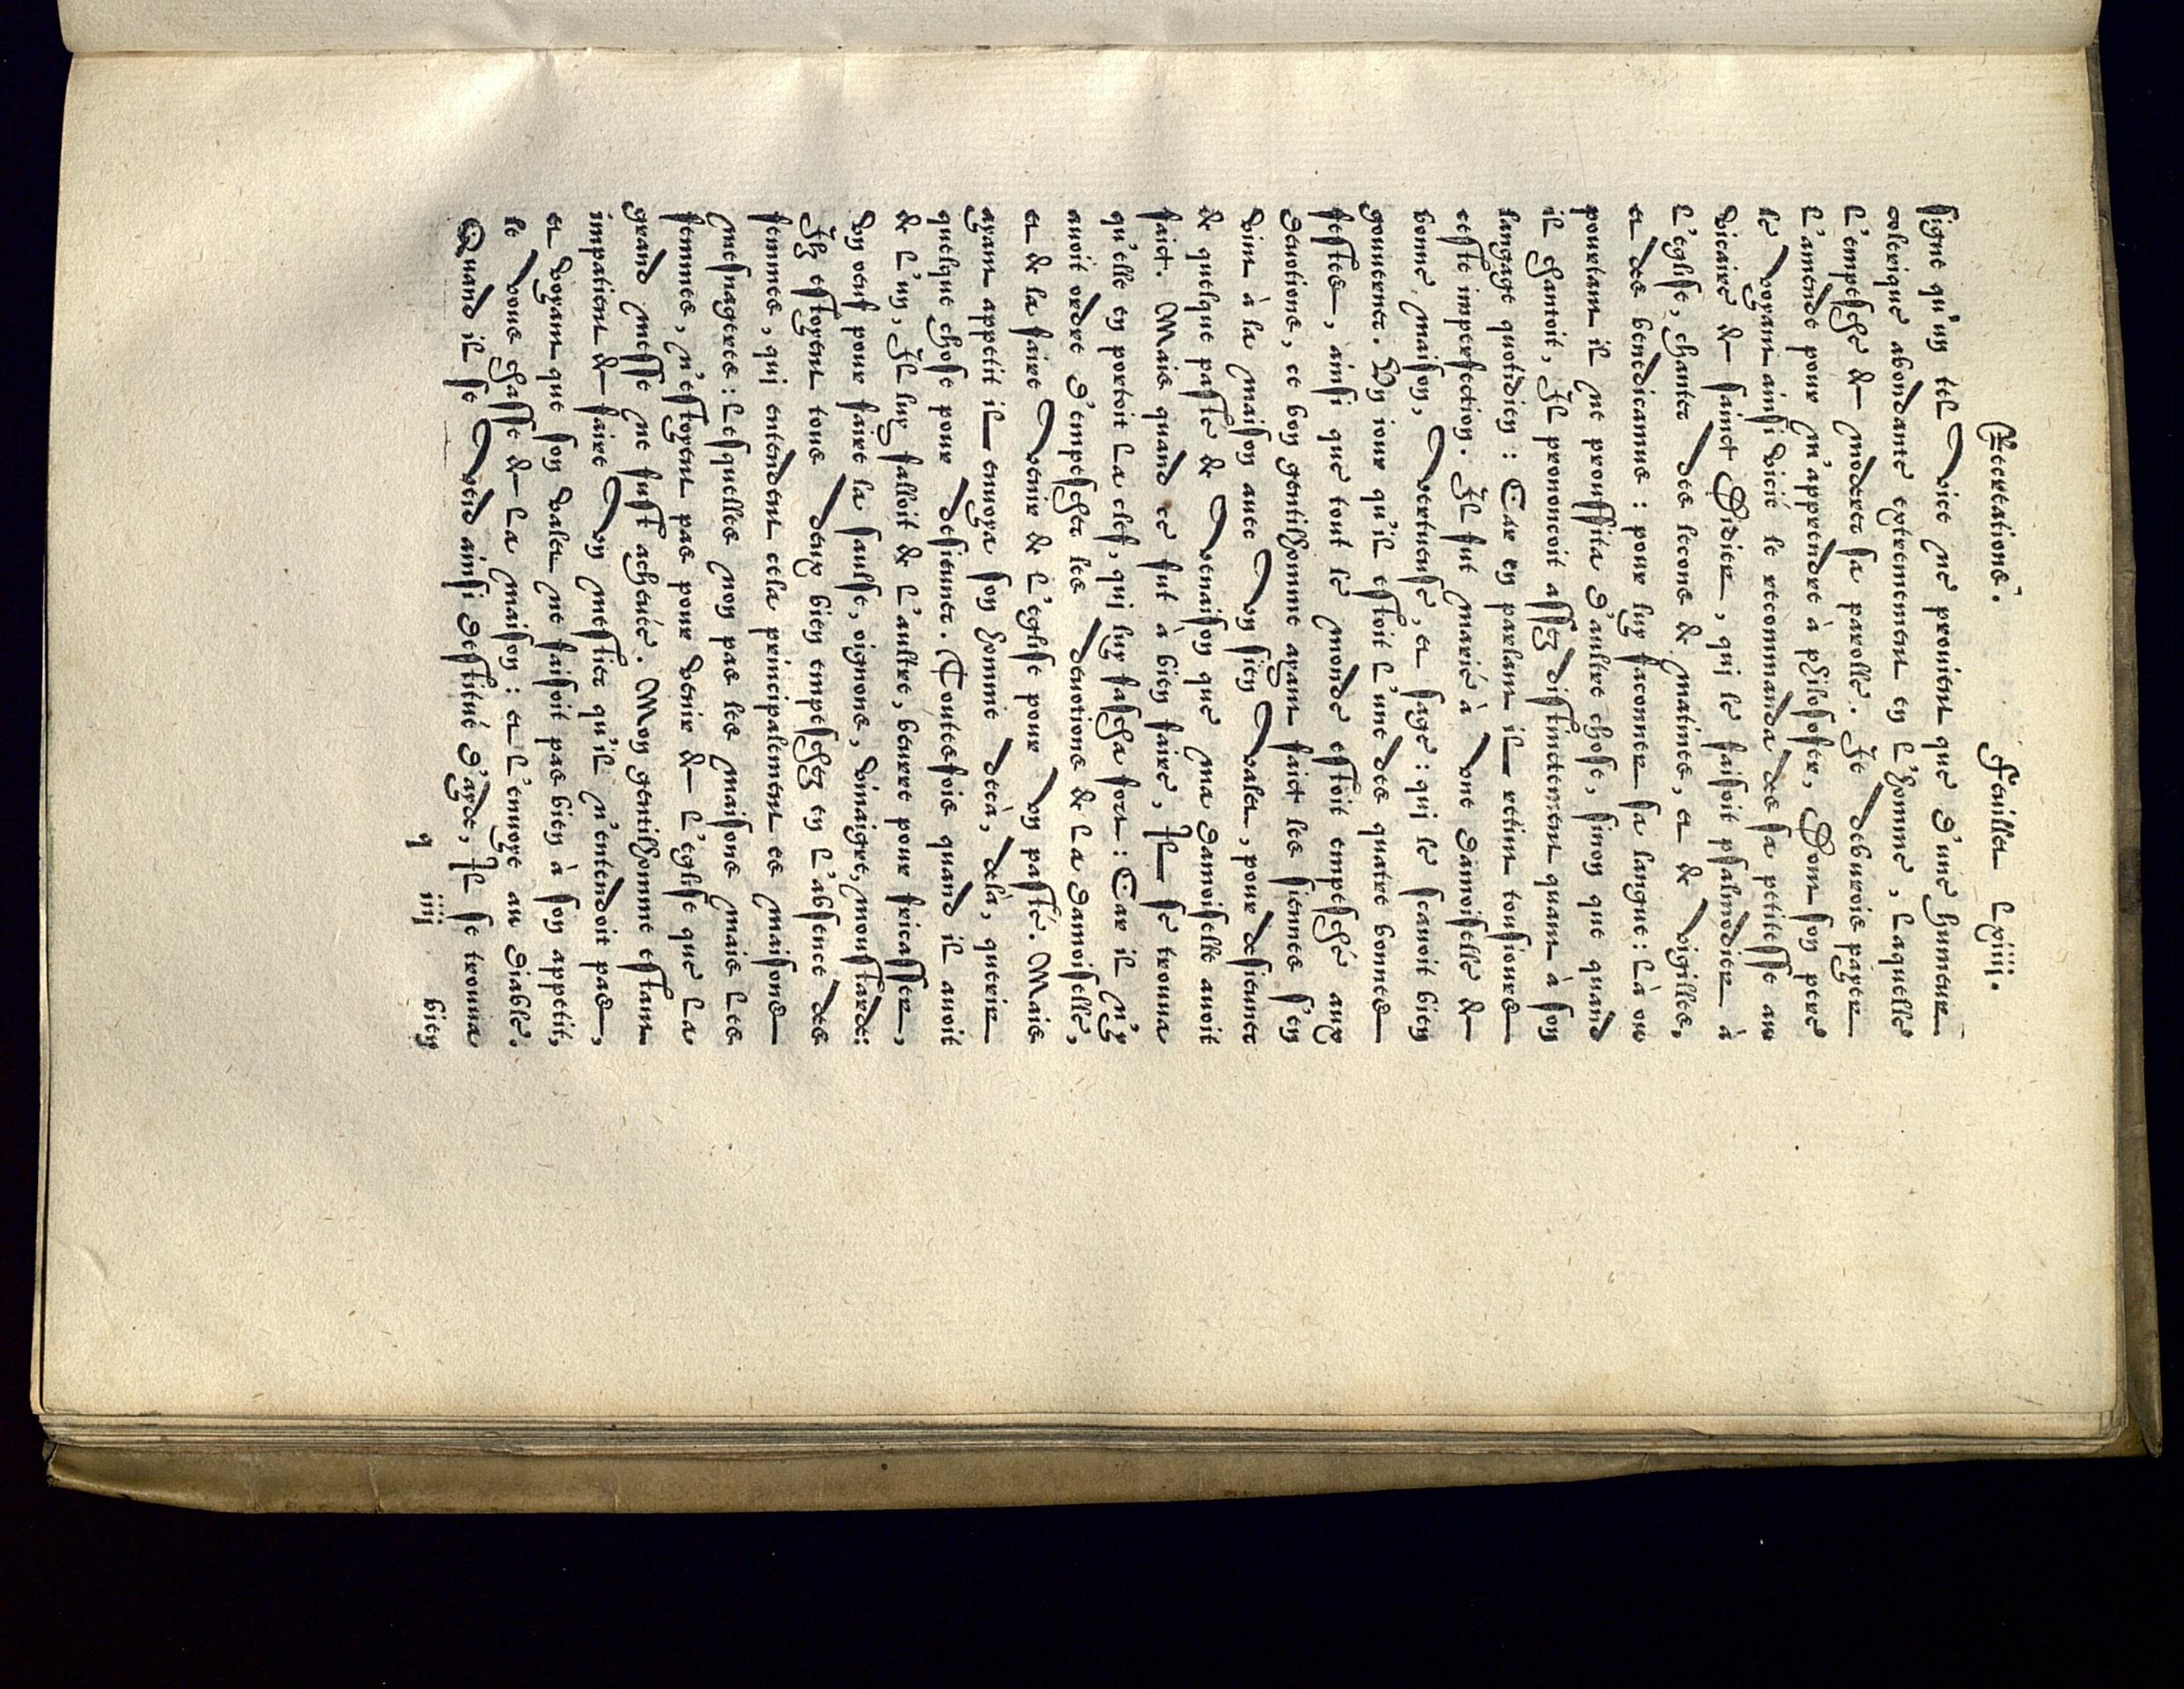 Recreations. Feuillet Lxiiii.
signe qu'un tel vice ne prouient que d'une humeur
colerique abondante extremement en l'homme, laquelle
l'empesche de moderer sa parolle. Ie deburois payer
l'amende pour m'apprendre à philosofer, Dont son pere
le voyant ainsi vicié le recommanda des sa petitesse au
vicaire de sainct Didier, qui le faisoit psalmodier à
l'eglise, chanter des lecons de matines, et de vigilles,
et des benedicamus: pour luy faconner sa langue: là ou
pourtant il ne prouffita d'aultre chose, sinon que quand
il chantoit, Il prononcoit assez distinctement quant à son
langage quotidien: Car en parlant il retint tousiours
ceste imperfection. Il fut marié à vne damoiselle de
bonne maison, vertueuse, et sage: qui le scauoit bien
gouuerner. Vn iour qu'il estoit l'une des quatre bonnes
festes, ainsi que tout le monde estoit empesché aux
deuotions, ce bon gentilhomme ayant faict les siennes s'en
vint à la maison auec vn sien valet, pour desieuner
de quelque pasté de venaison que ma damoiselle auoit
faict. Mais quand ce fut à bien faire, Il se trouua
qu'elle en portoit la clef, qui luy fascha fort: Car il n'y
auoit ordre d'empescher les deuotions de la damoiselle,
et de la faire venir de l'eglise pour vn pasté. Mais
ayant appetit il enuoya son homme decà, delà, querir
quelque chose pour desieuner. Toutesfois quand il auoit
de l'un, Il luy falloit de l'aultre, beurre pour fricasser,
vn oeuf pour faire la saulse, oignons, vinaigre, moustarde:
Ilz estoyent tous deux bien empeschez en l'absence des
femmes, qui entendent cela principalement es maisons
mesnageres: lesquelles non pas les maisons mais les
femmes, n'estoyent pas pour venir de l'eglise que la
grand messe ne fust acheuée. Mon gentilhomme estant
impatient de faire vn mestier qu'il n'entendoit pas,
et voyant que son valet ne faisoit pas bien à son appetit,
le vous chasse de la maison: et l'enuoye au diable.
Quand il se veid ainsi destitué d'ayde, Il se trouua
q iiij bien